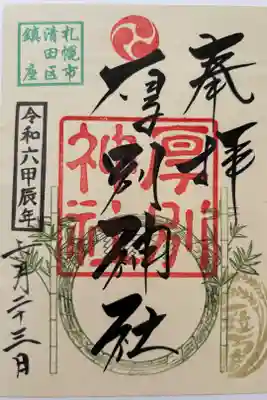 奉拝
厚別神社
厚別
神社
札幌市
清田区
鎮座
令和六甲辰年
月二十三日